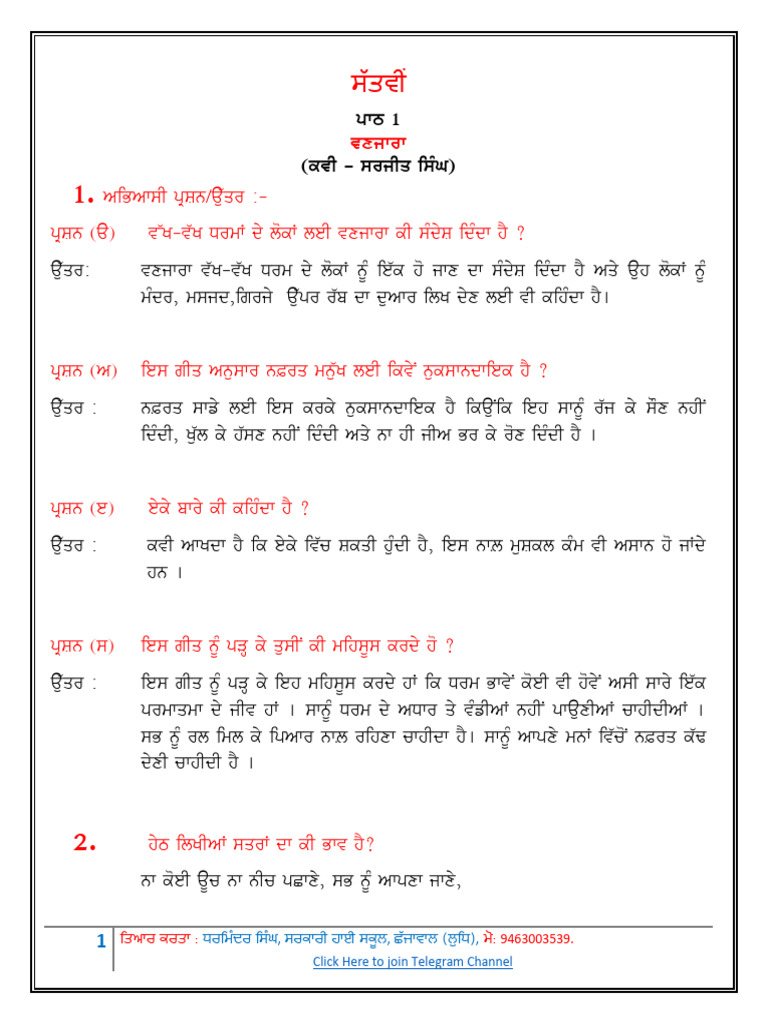 ਸੱਤਵੀਂ
ਪਾਠ 1
ਵਣਜਾਰਾ
(ਕਵੀ – ਸਰਜੀਤ ਸਿੰਘ)
1. ਅਭਿਆਸੀ ਪ੍ਰਸ਼ਨ/ਉੱਤਰ :-
ਪ੍ਰਸ਼ਨ (ੳ) ਵੱਖ-ਵੱਖ ਧਰਮਾਂ ਦੇ ਲੋਕਾਂ ਲਈ ਵਣਜਾਰਾ ਕੀ ਸੰਦੇਸ਼ ਦਿੰਦਾ ਹੈ ?
ਉੱਤਰ: ਵਣਜਾਰਾ ਵੱਖ-ਵੱਖ ਧਰਮ ਦੇ ਲੋਕਾਂ ਨੂੰ ਇੱਕ ਹੋ ਜਾਣ ਦਾ ਸੰਦੇਸ਼ ਦਿੰਦਾ ਹੈ ਅਤੇ ਉਹ ਲੋਕਾਂ ਨੂੰ
ਮੰਦਰ, ਮਸਜਦ,ਗਿਰਜੇ ਉੱਪਰ ਰੱਬ ਦਾ ਦੁਆਰ ਲਿਖ ਦੇਣ ਲਈ ਵੀ ਕਹਿੰਦਾ ਹੈ।
ਪ੍ਰਸ਼ਨ (ਅ) ਇਸ ਗੀਤ ਅਨੁਸਾਰ ਨਫ਼ਰਤ ਮਨੁੱਖ ਲਈ ਕਿਵੇਂ ਨੁਕਸਾਨਦਾਇਕ ਹੈ ?
ਉੱਤਰ : ਨਫ਼ਰਤ ਸਾਡੇ ਲਈ ਇਸ ਕਰਕੇ ਨੁਕਸਾਨਦਾਇਕ ਹੈ ਕਿਉਂਕਿ ਇਹ ਸਾਨੂੰ ਰੱਜ ਕੇ ਸੌਣ ਨਹੀਂ
ਦਿੰਦੀ, ਖੁੱਲ ਕੇ ਹੱਸਣ ਨਹੀਂ ਦਿੰਦੀ ਅਤੇ ਨਾ ਹੀ ਜੀਅ ਭਰ ਕੇ ਰੋਣ ਦਿੰਦੀ ਹੈ ।
ਪ੍ਰਸ਼ਨ (ੲ) ਏਕੇ ਬਾਰੇ ਕੀ ਕਹਿੰਦਾ ਹੈ ?
ਉੱਤਰ : ਕਵੀ ਆਖਦਾ ਹੈ ਕਿ ਏਕੇ ਵਿੱਚ ਸ਼ਕਤੀ ਹੁੰਦੀ ਹੈ, ਇਸ ਨਾਲ਼ ਮੁਸ਼ਕਲ ਕੰਮ ਵੀ ਅਸਾਨ ਹੋ ਜਾਂਦੇ
ਹਨ ।
ਪ੍ਰਸ਼ਨ (ਸ) ਇਸ ਗੀਤ ਨੂੰ ਪੜ੍ਹ ਕੇ ਤੁਸੀਂ ਕੀ ਮਹਿਸੂਸ ਕਰਦੇ ਹੋ ?
ਉੱਤਰ : ਇਸ ਗੀਤ ਨੂੰ ਪੜ੍ਹ ਕੇ ਇਹ ਮਹਿਸੂਸ ਕਰਦੇ ਹਾਂ ਕਿ ਧਰਮ ਭਾਵੇਂ ਕੋਈ ਵੀ ਹੋਵੇਂ ਅਸੀ ਸਾਰੇ ਇੱਕ
ਪਰਮਾਤਮਾ ਦੇ ਜੀਵ ਹਾਂ । ਸਾਨੂੰ ਧਰਮ ਦੇ ਅਧਾਰ ਤੇ ਵੰਡੀਆਂ ਨਹੀਂ ਪਾਉਣੀਆਂ ਚਾਹੀਦੀਆਂ ।
ਸਭ ਨੂੰ ਰਲ ਮਿਲ ਕੇ ਪਿਆਰ ਨਾਲ਼ ਰਹਿਣਾ ਚਾਹੀਦਾ ਹੈ। ਸਾਨੂੰ ਆਪਣੇ ਮਨਾਂ ਵਿੱਚੋਂ ਨਫ਼ਰਤ ਕੱਢ
ਦੇਣੀ ਚਾਹੀਦੀ ਹੈ ।
2. ਹੇਠ ਲਿਖੀਆਂ ਸਤਰਾਂ ਦਾ ਕੀ ਭਾਵ ਹੈ?
ਨਾ ਕੋਈ ਊਚ ਨਾ ਨੀਚ ਪਛਾਣੇ, ਸਭ ਨੂੰ ਆਪਣਾ ਜਾਣੇ,
1 ਤਿਆਰ ਕਰਤਾ : ਧਰਮਿੰਦਰ ਸਿੰਘ, ਸਰਕਾਰੀ ਹਾਈ ਸਕੂਲ, ਛੱਜਾਵਾਲ (ਲੁਧਿ), ਮੋ: 9463003539.
Click Here to join Telegram Channel